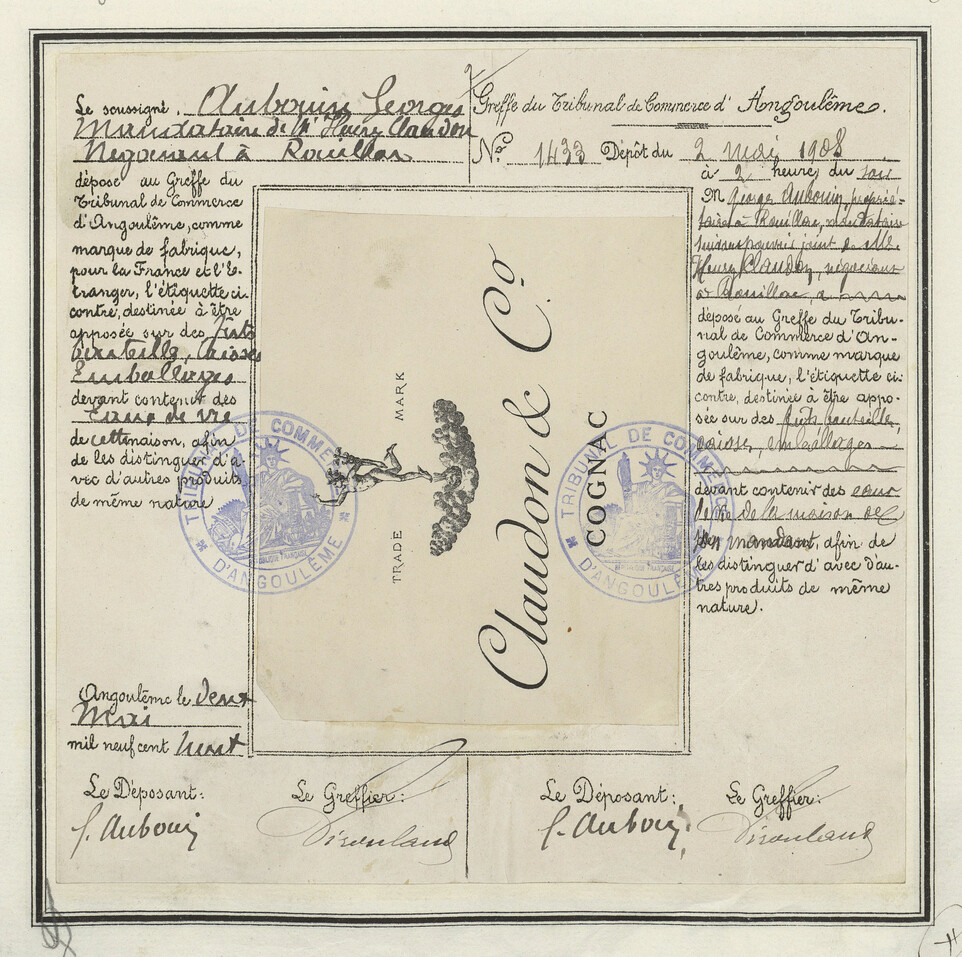 Le soussigné, Aubouin Georges
Mandataire de Mr Henry Claudon
Négociant à Rouillac
dépose au Greffe du
Tribunal de Commerce
d'Angoulême, comme
marque de fabrique,
pour la France et l'É-
tranger, l'étiquette ci-
contre, destinée à être
apposée sur des fûts
bouteille, Caisses
Emballages
devant contenir des
Eaux de Vie
de cette maison, afin
de les distinguer d'a-
vec d'autres produits
de même nature
Angoulême le deux
Mai
mil neuf cent huit
Le Déposant:
G. Aubouin
Le Greffier:
TRADE MARK
Claudon & Co
COGNAC
TRIBUNAL DE COMMERCE
D'ANGOULÊME
TRIBUNAL DE COMMERCE
D'ANGOULÊME
Greffe du Tribunal de Commerce d'Angoulême.
No 1433 Dépôt du 2 mai 1908
à 2 heures du soir
M George Aubouin, proprié-
taire à Rouillac, mandataire
suivant pouvoir joint de Mr
Henry Claudon, négociant
à Rouillac, a
déposé au Greffe du Tribu-
nal de Commerce d'An-
goulême, comme marque
de fabrique, l'étiquette ci-
contre, destinée à être appo-
sée sur des fûts, bouteille,
caisse, emballages
devant contenir des eaux
de vie de la maison de
son mandant, afin de
les distinguer d'avec d'au-
tres produits de même
nature.
Le Déposant:
G. Aubouin
Le Greffier: